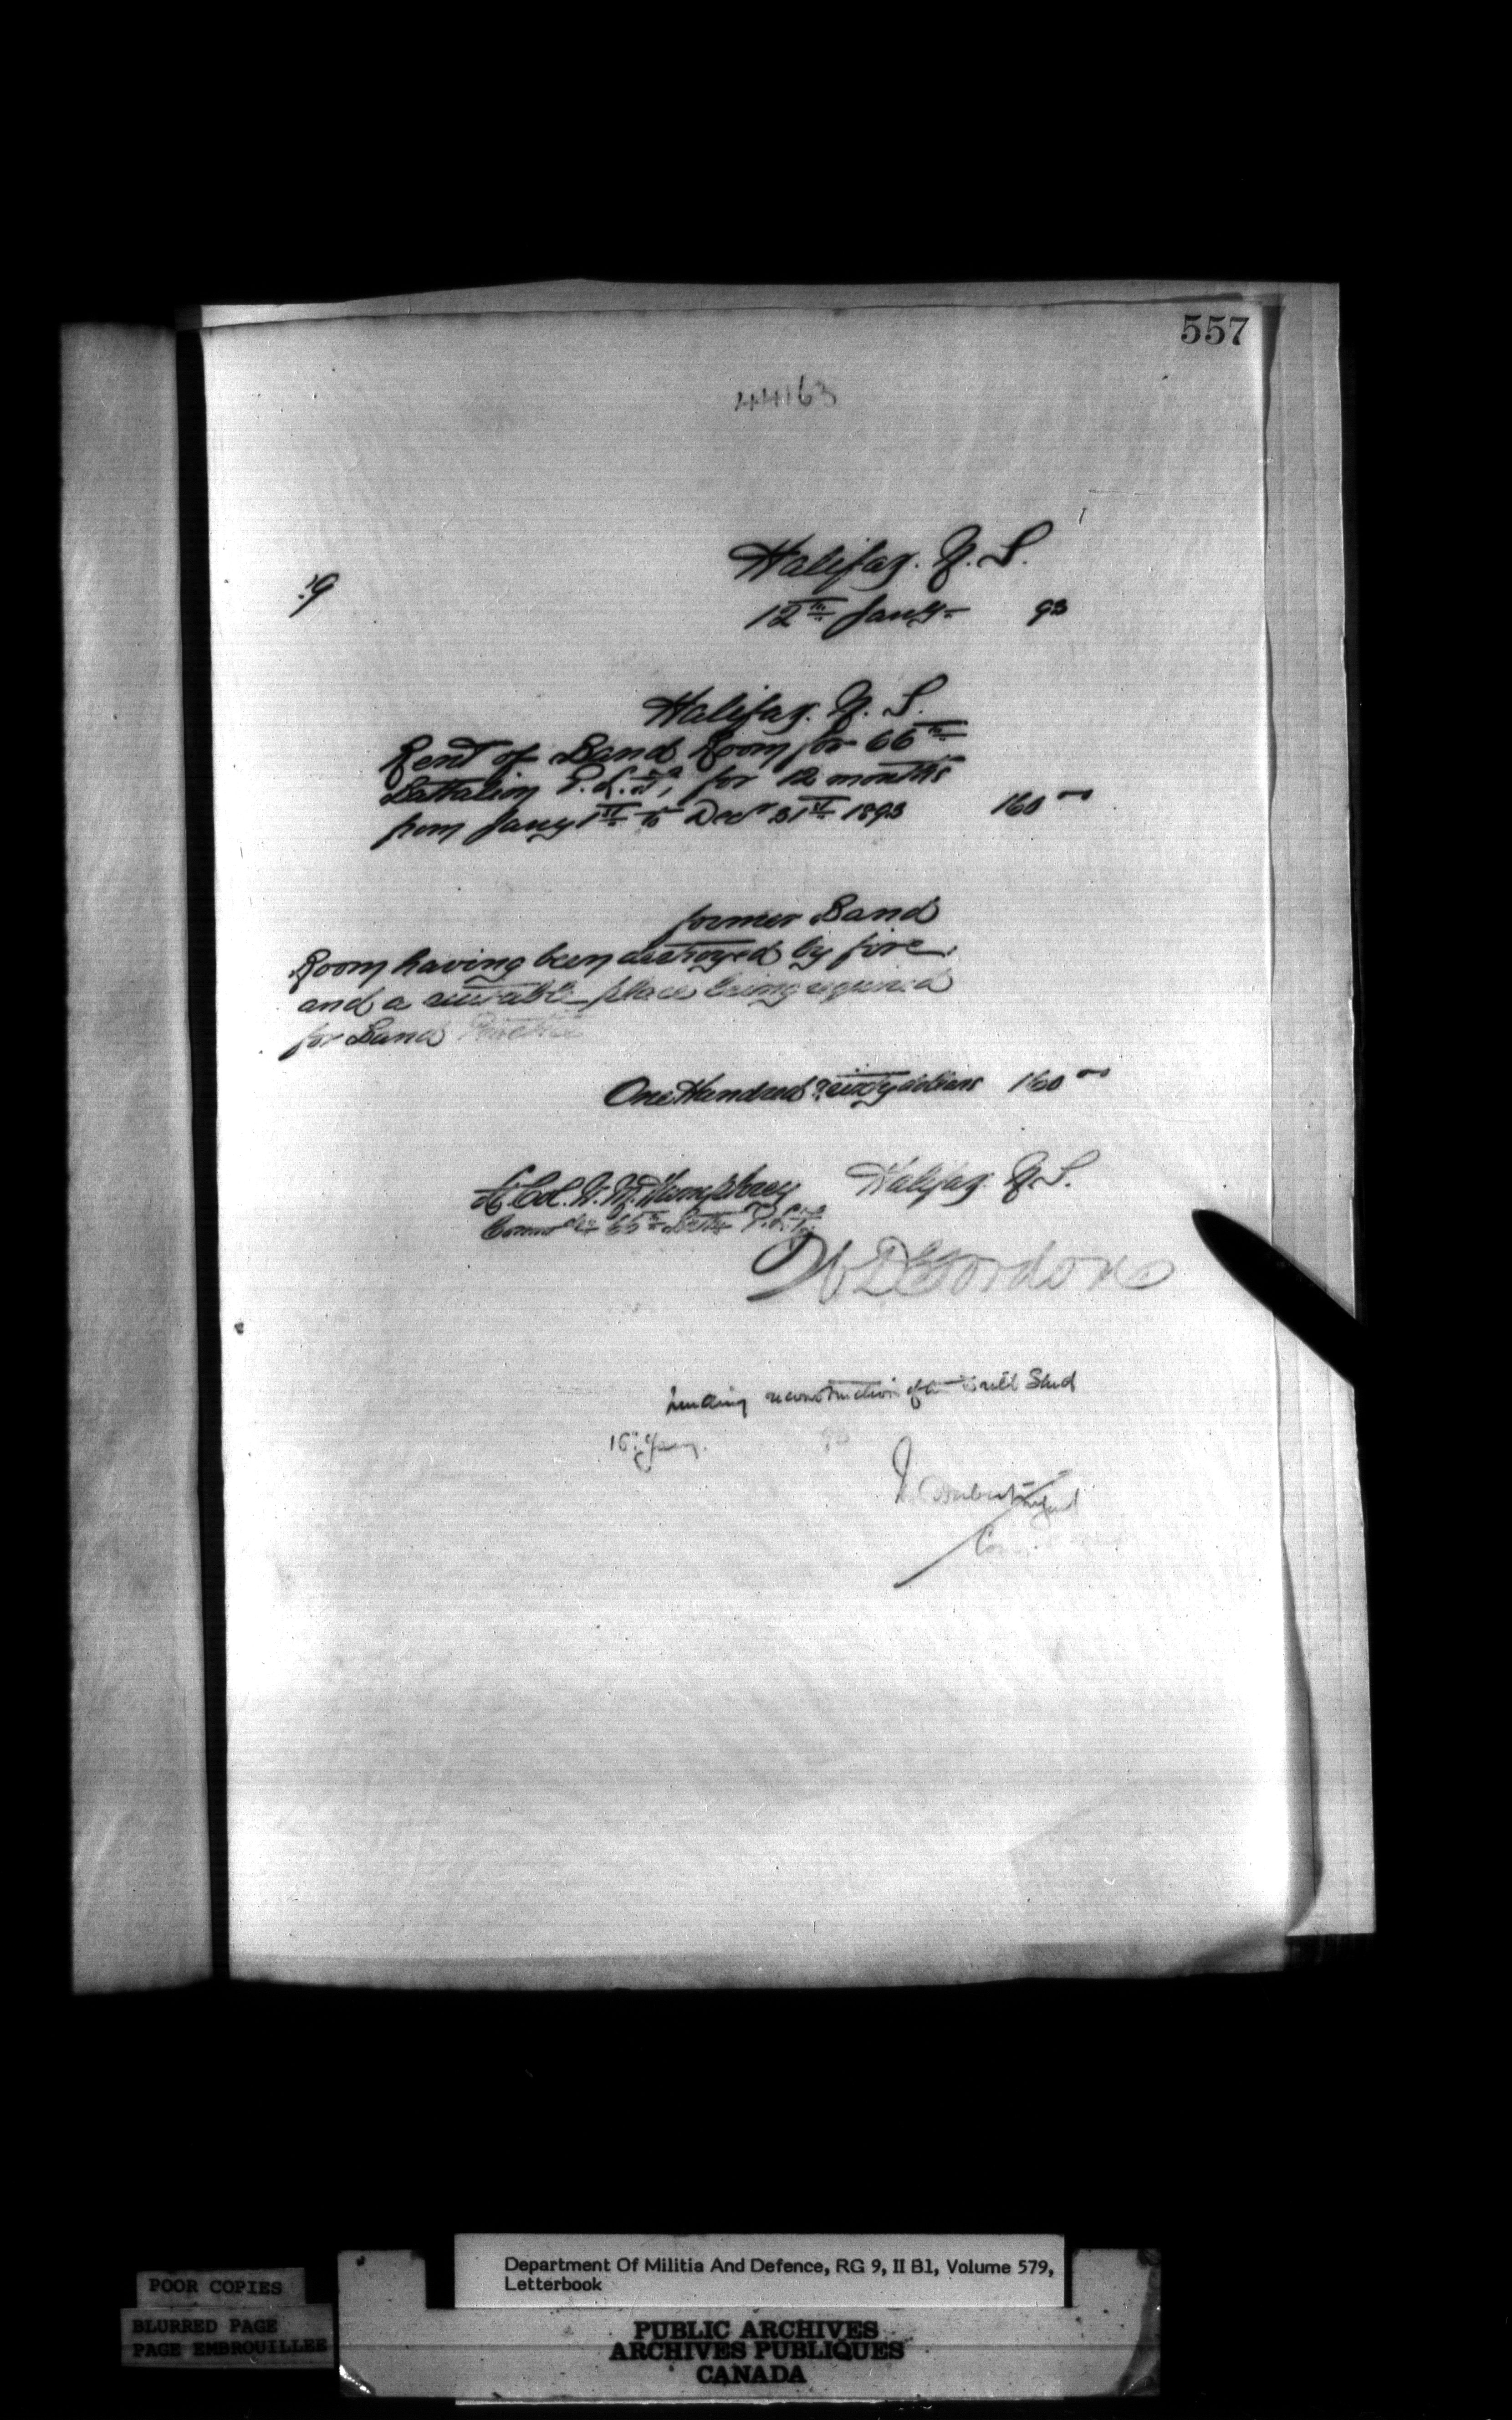 557
44163
19
Halifax. N. S.
12th Jany. 93
Halifax. N. S.
Rent of Band Room for 66th
Battalion P. L. F., for 12 months
from Jany 1st to Decr 31st 1893 160 00
former Band
Room having been destroyed by fire,
and a suitable place being required
for Band Practice
One Hundred & sixty dollars 160 00
Lt. Col. Humphrey Halifax N. S.
Batt. P. L. F.
W D Gordon
Pending reconstruction of Drill Shed
16th Jany. 93
Department Of Militia And Defence, RG 9, II B1, Volume 579,
Letterbook
POOR COPIES
BLURRED PAGE
PAGE EMBROUILLEE
PUBLIC ARCHIVES
ARCHIVES PUBLIQUES
CANADA